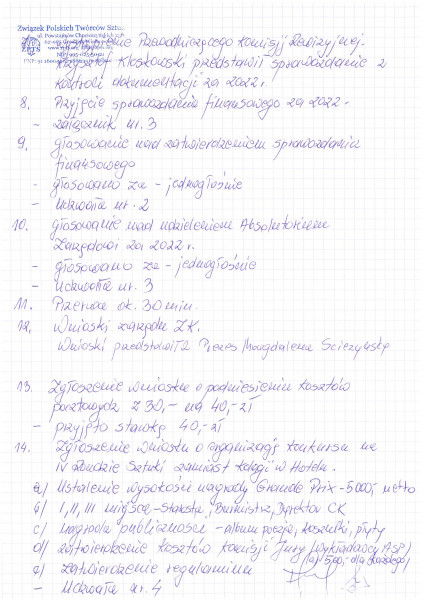 Związek Polskich Twórców Sztu
ul. Powstańców
ZPTS
Przewodniczącego Komisji Rewizyjnej.
Kłoskowski przedstawił sprawozdanie z
kontroli dokumentacji za 2022r.
8. Przyjęcie sprawozdania finansowego za 2022r.
- załącznik nr. 3
9. głosowanie nad zatwierdzeniem sprawozdania
finansowego
- głosowano za - jednogłośnie
- Uchwała nr. 2
10. głosowanie nad udzieleniem Absolutorium
Zarządowi za 2022r.
- głosowano za - jednogłośnie
- Uchwała nr. 3
11. Przerwa ok. 30 min.
12. Wnioski zarządu ZK.
Wnioski przedstawiła Prezes Magdalena
13. Zgłoszenie wniosku o podniesieniu kosztów
pocztowych z 30,- na 40,-zł
- przyjęto stawkę 40,-zł
14. Zgłoszenie wniosku o organizację konkursu na
IV Sztuki zamiast w Hotelu.
a/ Ustalenie wysokości nagrody Grande Prix - 5000,- netto
b/ I, II, III miejsce - Starosta, Burmistrz, Dyrektor CK
c/ nagroda publiczności - album poezja, koszulki, płyty
d/ zatwierdzenie kosztów Komisji Jury (wykładowcy ASP)
(a) 500,- dla każdego)
e/ Zatwierdzenie regulaminu
- Uchwała nr. 4